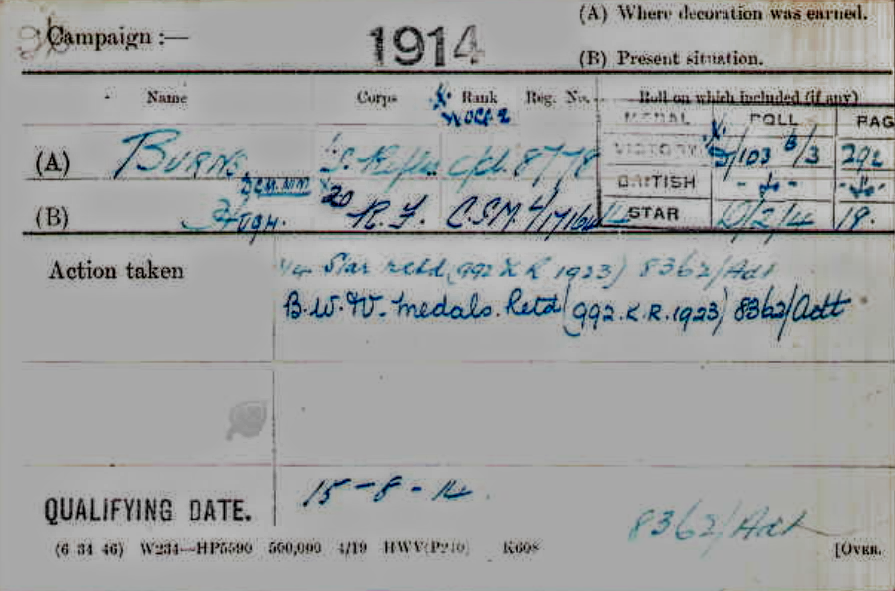 Campaign :— 1914 (A) Where decoration was earned.
(B) Present situation.
Name Corps X. Rank Reg. No. Roll on which included (if any)
WOCl 2 MEDAL ROLL PAG
(A) BURNS S. Rifles c/pl. 8778 VICTORY X. J/103 B/3 292
D.C.M. M.M. BRITISH - do - - do -
(B) Hugh. X 20 R.F. C.S.M. STAR D/2/4 19.
Action taken 14 Star retd (992 K R 1923) 8362/Adt
B.W.V. medals. Retd (992.K.R.1923) 8362/Adt
QUALIFYING DATE. 15-8-14.
8362/Adt
(6 34 46) W234—HP5590 500,000 4/19 HWV(P240) K608 [OVER.